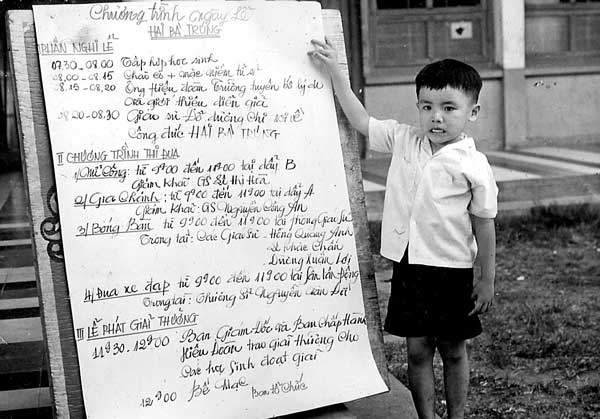 Chương trình ngày Lễ
HAI BÀ TRƯNG
PHẦN NGHI LỄ
07.30 - 08.00 Tập họp học sinh
08.00 - 08.15 Chào cờ + mặc niệm tử sĩ
08.15 - 08.20 Ông Hiệu đoàn Trưởng tuyên bố lý do
và giới thiệu diễn giả
08.20 - 08.30 Giáo sư Đỗ dương Chi nói về
Công đức HAI BÀ TRƯNG
II CHƯƠNG TRÌNH THI ĐUA
1/ Nữ Công: từ 9g00 đến 11g00 tại dẫy B
Giám khảo GS Lê thị Hòa
2/ Gia Chánh: từ 9g00 đến 11g00 tại dẫy A
Giám khảo: GS Nguyễn Công Ân
3/ Bóng Bàn từ 9g00 đến 11g00 tại phòng Giáo Sư
Trọng tài: Các Giáo Sư - Hồng Quang Anh
Lê Khắc Chấn
Dương Xuân
4/ Đua xe đạp từ 9g00 đến 11g00 tại sân
Trọng tài: Thượng Sĩ Nguyễn văn
III LỄ PHÁT GIẢI THƯỞNG
11g30 - 12g00 Ban Giám Đốc và Ban Chấp Hành
Hiệu Đoàn trao giải thưởng cho
Các học sinh đoạt giải
12g00 Bế Mạc
Ban tổ chức